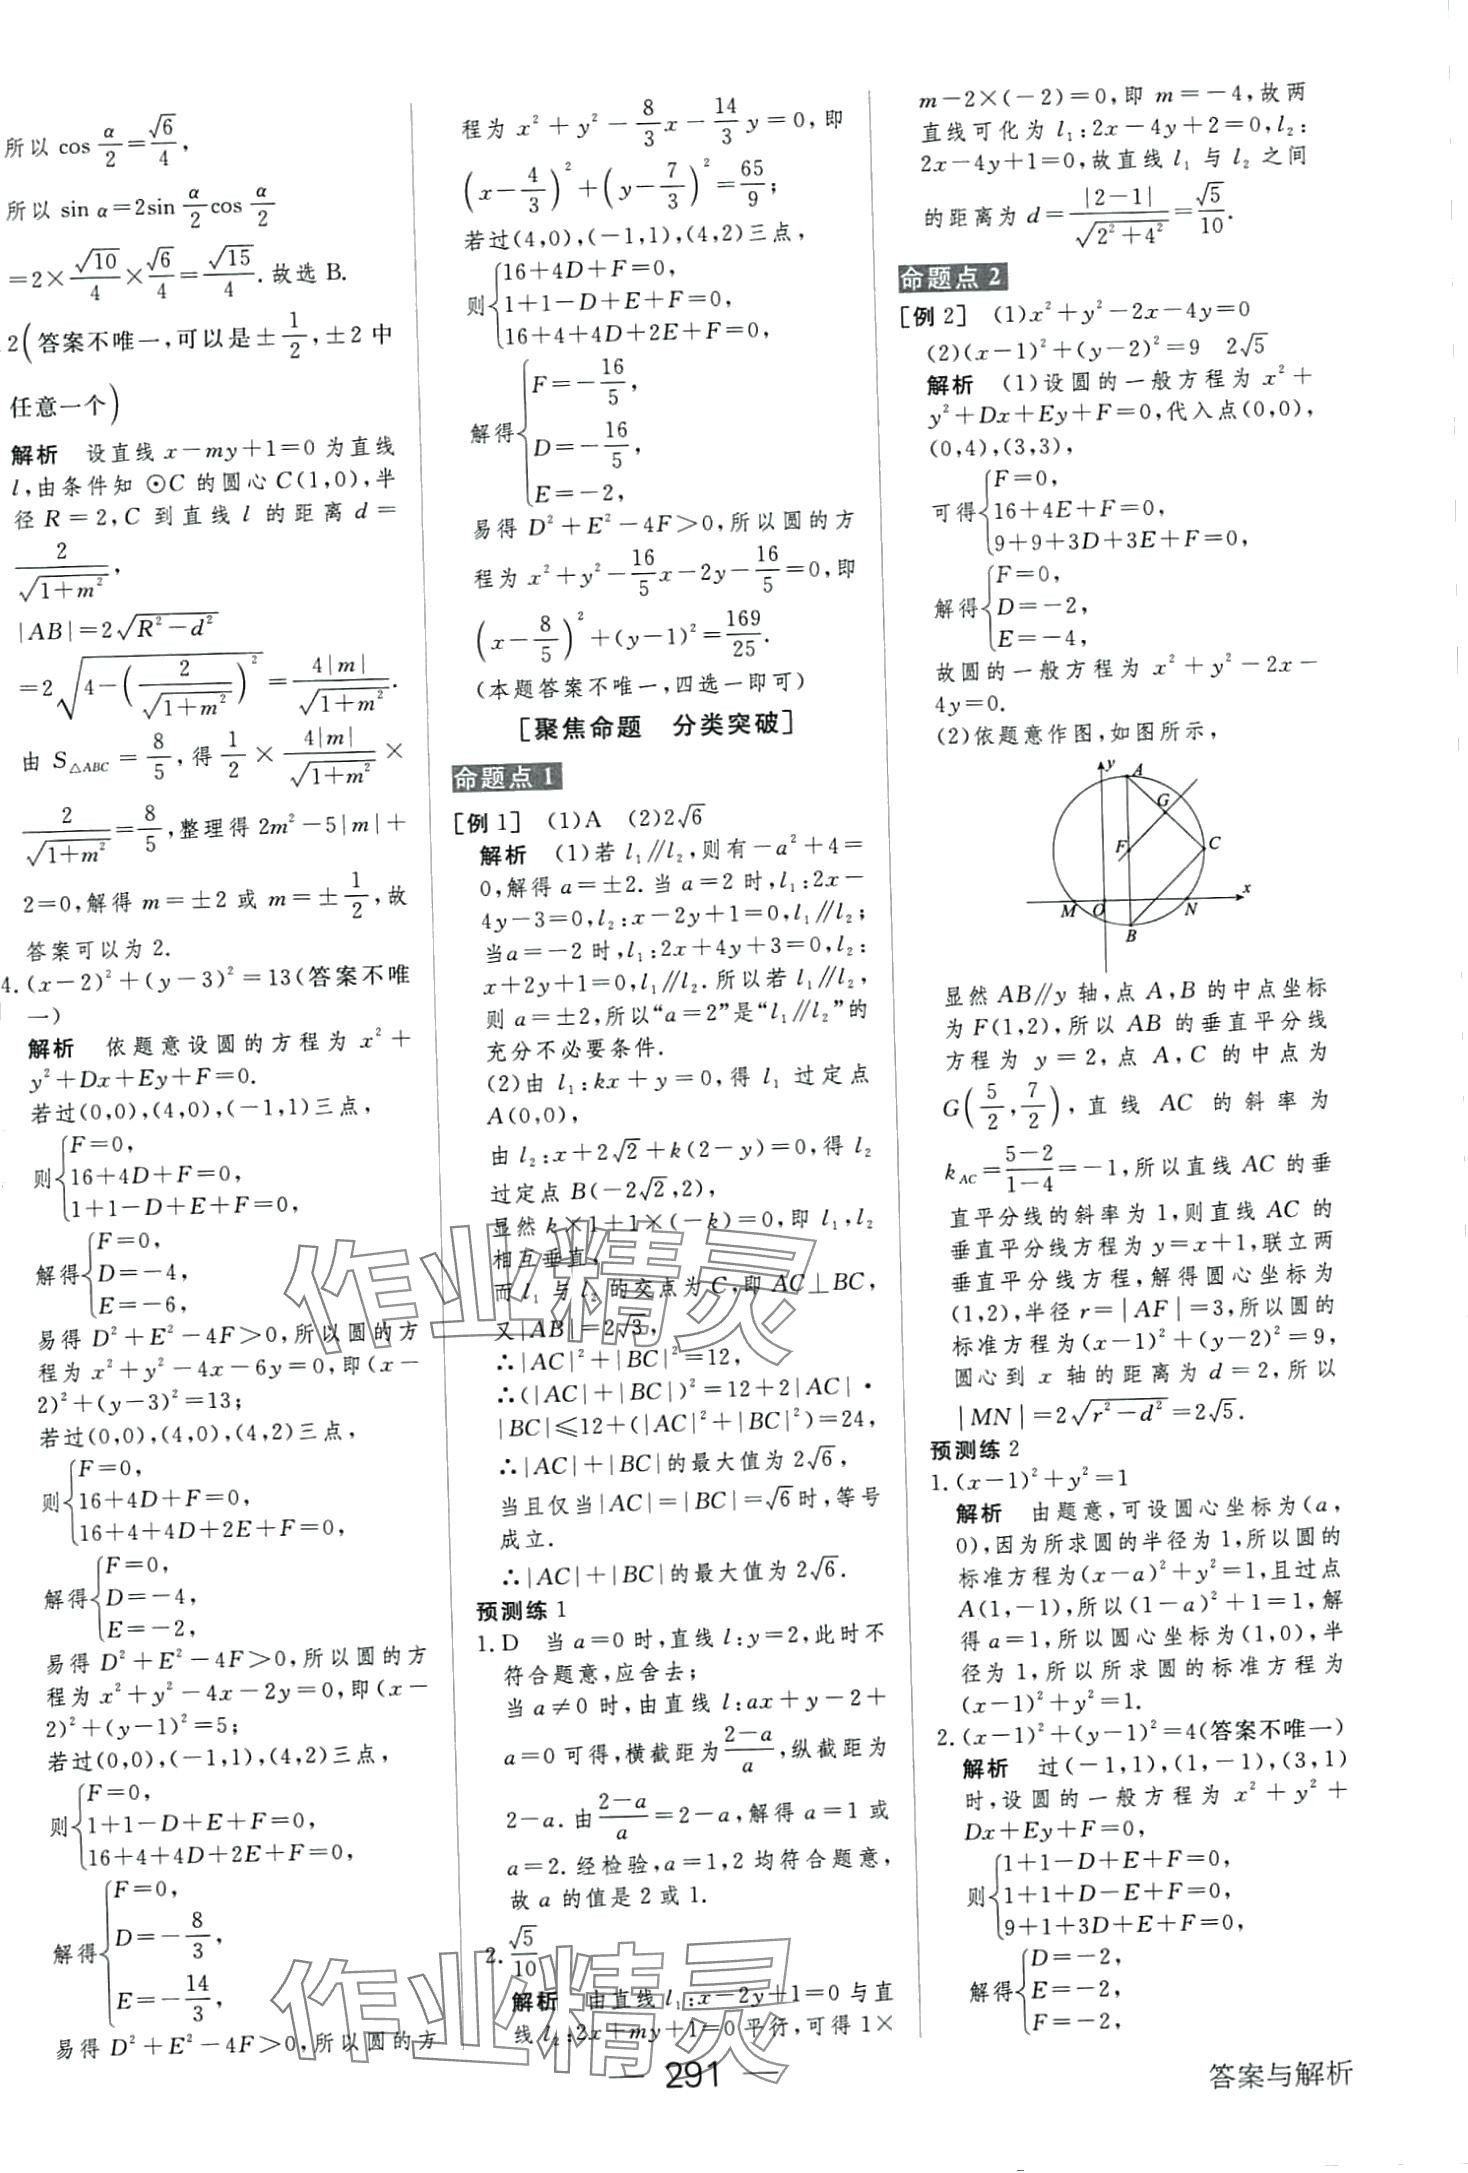 所以 cos α/2 = √6/4,
所以 sin α=2sin α/2 cos α/2
=2×√10/4×√6/4=√15/4.故选 B.
2(答案不唯一,可以是±1/2,±2 中
任意一个)
解析 设直线 x-my+1=0 为直线
l,由条件知 ⊙C 的圆心 C(1,0),半
径 R=2,C 到直线 l 的距离 d=
2/√(1+m²),
|AB|=2√(R²-d²)
=2√(4-(2/√(1+m²))²)=4|m|/√(1+m²).
由 S△ABC=8/5,得 1/2×4|m|/√(1+m²)×
2/√(1+m²)=8/5,整理得 2m²-5|m|+
2=0,解得 m=±2 或 m=±1/2,故
答案可以为 2.
4.(x-2)²+(y-3)²=13(答案不唯
一)
解析 依题意设圆的方程为 x²+
y²+Dx+Ey+F=0.
若过(0,0),(4,0),(-1,1)三点,
则{F=0,
16+4D+F=0,
1+1-D+E+F=0,
解得{F=0,
D=-4,
E=-6,
易得 D²+E²-4F>0,所以圆的方
程为 x²+y²-4x-6y=0,即(x-
2)²+(y-3)²=13;
若过(0,0),(4,0),(4,2)三点,
则{F=0,
16+4D+F=0,
16+4+4D+2E+F=0,
解得{F=0,
D=-4,
E=-2,
易得 D²+E²-4F>0,所以圆的方
程为 x²+y²-4x-2y=0,即(x-
2)²+(y-1)²=5;
若过(0,0),(-1,1),(4,2)三点,
则{F=0,
1+1-D+E+F=0,
16+4+4D+2E+F=0,
解得{F=0,
D=-8/3,
E=-14/3,
易得 D²+E²-4F>0,所以圆的方
程为 x²+y²-8/3x-14/3y=0,即
(x-4/3)²+(y-7/3)²=65/9;
若过(4,0),(-1,1),(4,2)三点,
则{16+4D+F=0,
1+1-D+E+F=0,
16+4+4D+2E+F=0,
解得{F=-16/5,
D=-16/5,
E=-2,
易得 D²+E²-4F>0,所以圆的方
程为 x²+y²-16/5x-2y-16/5=0,即
(x-8/5)²+(y-1)²=169/25.
(本题答案不唯一,四选一即可)
[聚焦命题 分类突破]
命题点 1
[例 1] (1)A (2)2√6
解析 (1)若 l₁∥l₂,则有-a²+4=
0,解得 a=±2.当 a=2 时,l₁:2x-
4y-3=0,l₂:x-2y+1=0,l₁∥l₂;
当a=-2 时,l₁:2x+4y+3=0,l₂:
x+2y+1=0,l₁∥l₂.所以若 l₁∥l₂,
则 a=±2,所以“a=2”是“l₁∥l₂”的
充分不必要条件.
(2)由 l₁:kx+y=0,得 l₁ 过定点
A(0,0),
由 l₂:x+2√2+k(2-y)=0,得 l₂
过定点 B(-2√2,2),
显然 k×1+1×(-k)=0,即 l₁,l₂
相互垂直,
而 l₁ 与 l₂ 的交点为 C,即 AC⊥BC,
又|AB|=2√3,
∴|AC|²+|BC|²=12,
∴(|AC|+|BC|)²=12+2|AC|·
|BC|≤12+(|AC|²+|BC|²)=24,
∴|AC|+|BC|的最大值为 2√6,
当且仅当|AC|=|BC|=√6时,等号
成立.
∴|AC|+|BC|的最大值为 2√6.
预测练 1
1.D 当 a=0 时,直线 l:y=2,此时不
符合题意,应舍去;
当 a≠0 时,由直线 l:ax+y-2+
a=0 可得,横截距为(2-a)/a,纵截距为
2-a.由(2-a)/a=2-a,解得 a=1 或
a=2.经检验,a=1,2 均符合题意,
故 a 的值是 2 或 1.
2.√5/10
解析 由直线 l₁:x-2y+1=0 与直
线 l₂:2x+my+1=0 平行,可得 1×
m-2×(-2)=0,即 m=-4,故两
直线可化为 l₁:2x-4y+2=0,l₂:
2x-4y+1=0,故直线 l₁ 与 l₂ 之间
的距离为 d=|2-1|/√(2²+4²)=√5/10.
命题点 2
[例 2] (1)x²+y²-2x-4y=0
(2)(x-1)²+(y-2)²=9 2√5
解析 (1)设圆的一般方程为 x²+
y²+Dx+Ey+F=0,代入点(0,0),
(0,4),(3,3),
可得{F=0,
16+4E+F=0,
9+9+3D+3E+F=0,
解得{F=0,
D=-2,
E=-4,
故圆的一般方程为 x²+y²-2x-
4y=0.
(2)依题意作图,如图所示,
y A
G
F C
M O N x
B
显然 AB∥y 轴,点 A,B 的中点坐标
为 F(1,2),所以 AB 的垂直平分线
方程为 y=2,点 A,C 的中点为
G(5/2,7/2),直线 AC 的斜率为
k_AC=(5-2)/(1-4)=-1,所以直线 AC 的垂
直平分线的斜率为 1,则直线 AC 的
垂直平分线方程为 y=x+1,联立两
垂直平分线方程,解得圆心坐标为
(1,2),半径 r=|AF|=3,所以圆的
标准方程为(x-1)²+(y-2)²=9,
圆心到 x 轴的距离为 d=2,所以
|MN|=2√(r²-d²)=2√5.
预测练 2
1.(x-1)²+y²=1
解析 由题意,可设圆心坐标为(a,
0),因为所求圆的半径为 1,所以圆的
标准方程为(x-a)²+y²=1,且过点
A(1,-1),所以(1-a)²+1=1,解
得 a=1,所以圆心坐标为(1,0),半
径为 1,所以所求圆的标准方程为
(x-1)²+y²=1.
2.(x-1)²+(y-1)²=4(答案不唯一)
解析 过(-1,1),(1,-1),(3,1)
时,设圆的一般方程为 x²+y²+
Dx+Ey+F=0,
则{1+1-D+E+F=0,
1+1+D-E+F=0,
9+1+3D+E+F=0,
解得{D=-2,
E=-2,
F=-2,
作业精灵
作业精灵
— 291 —
答案与解析